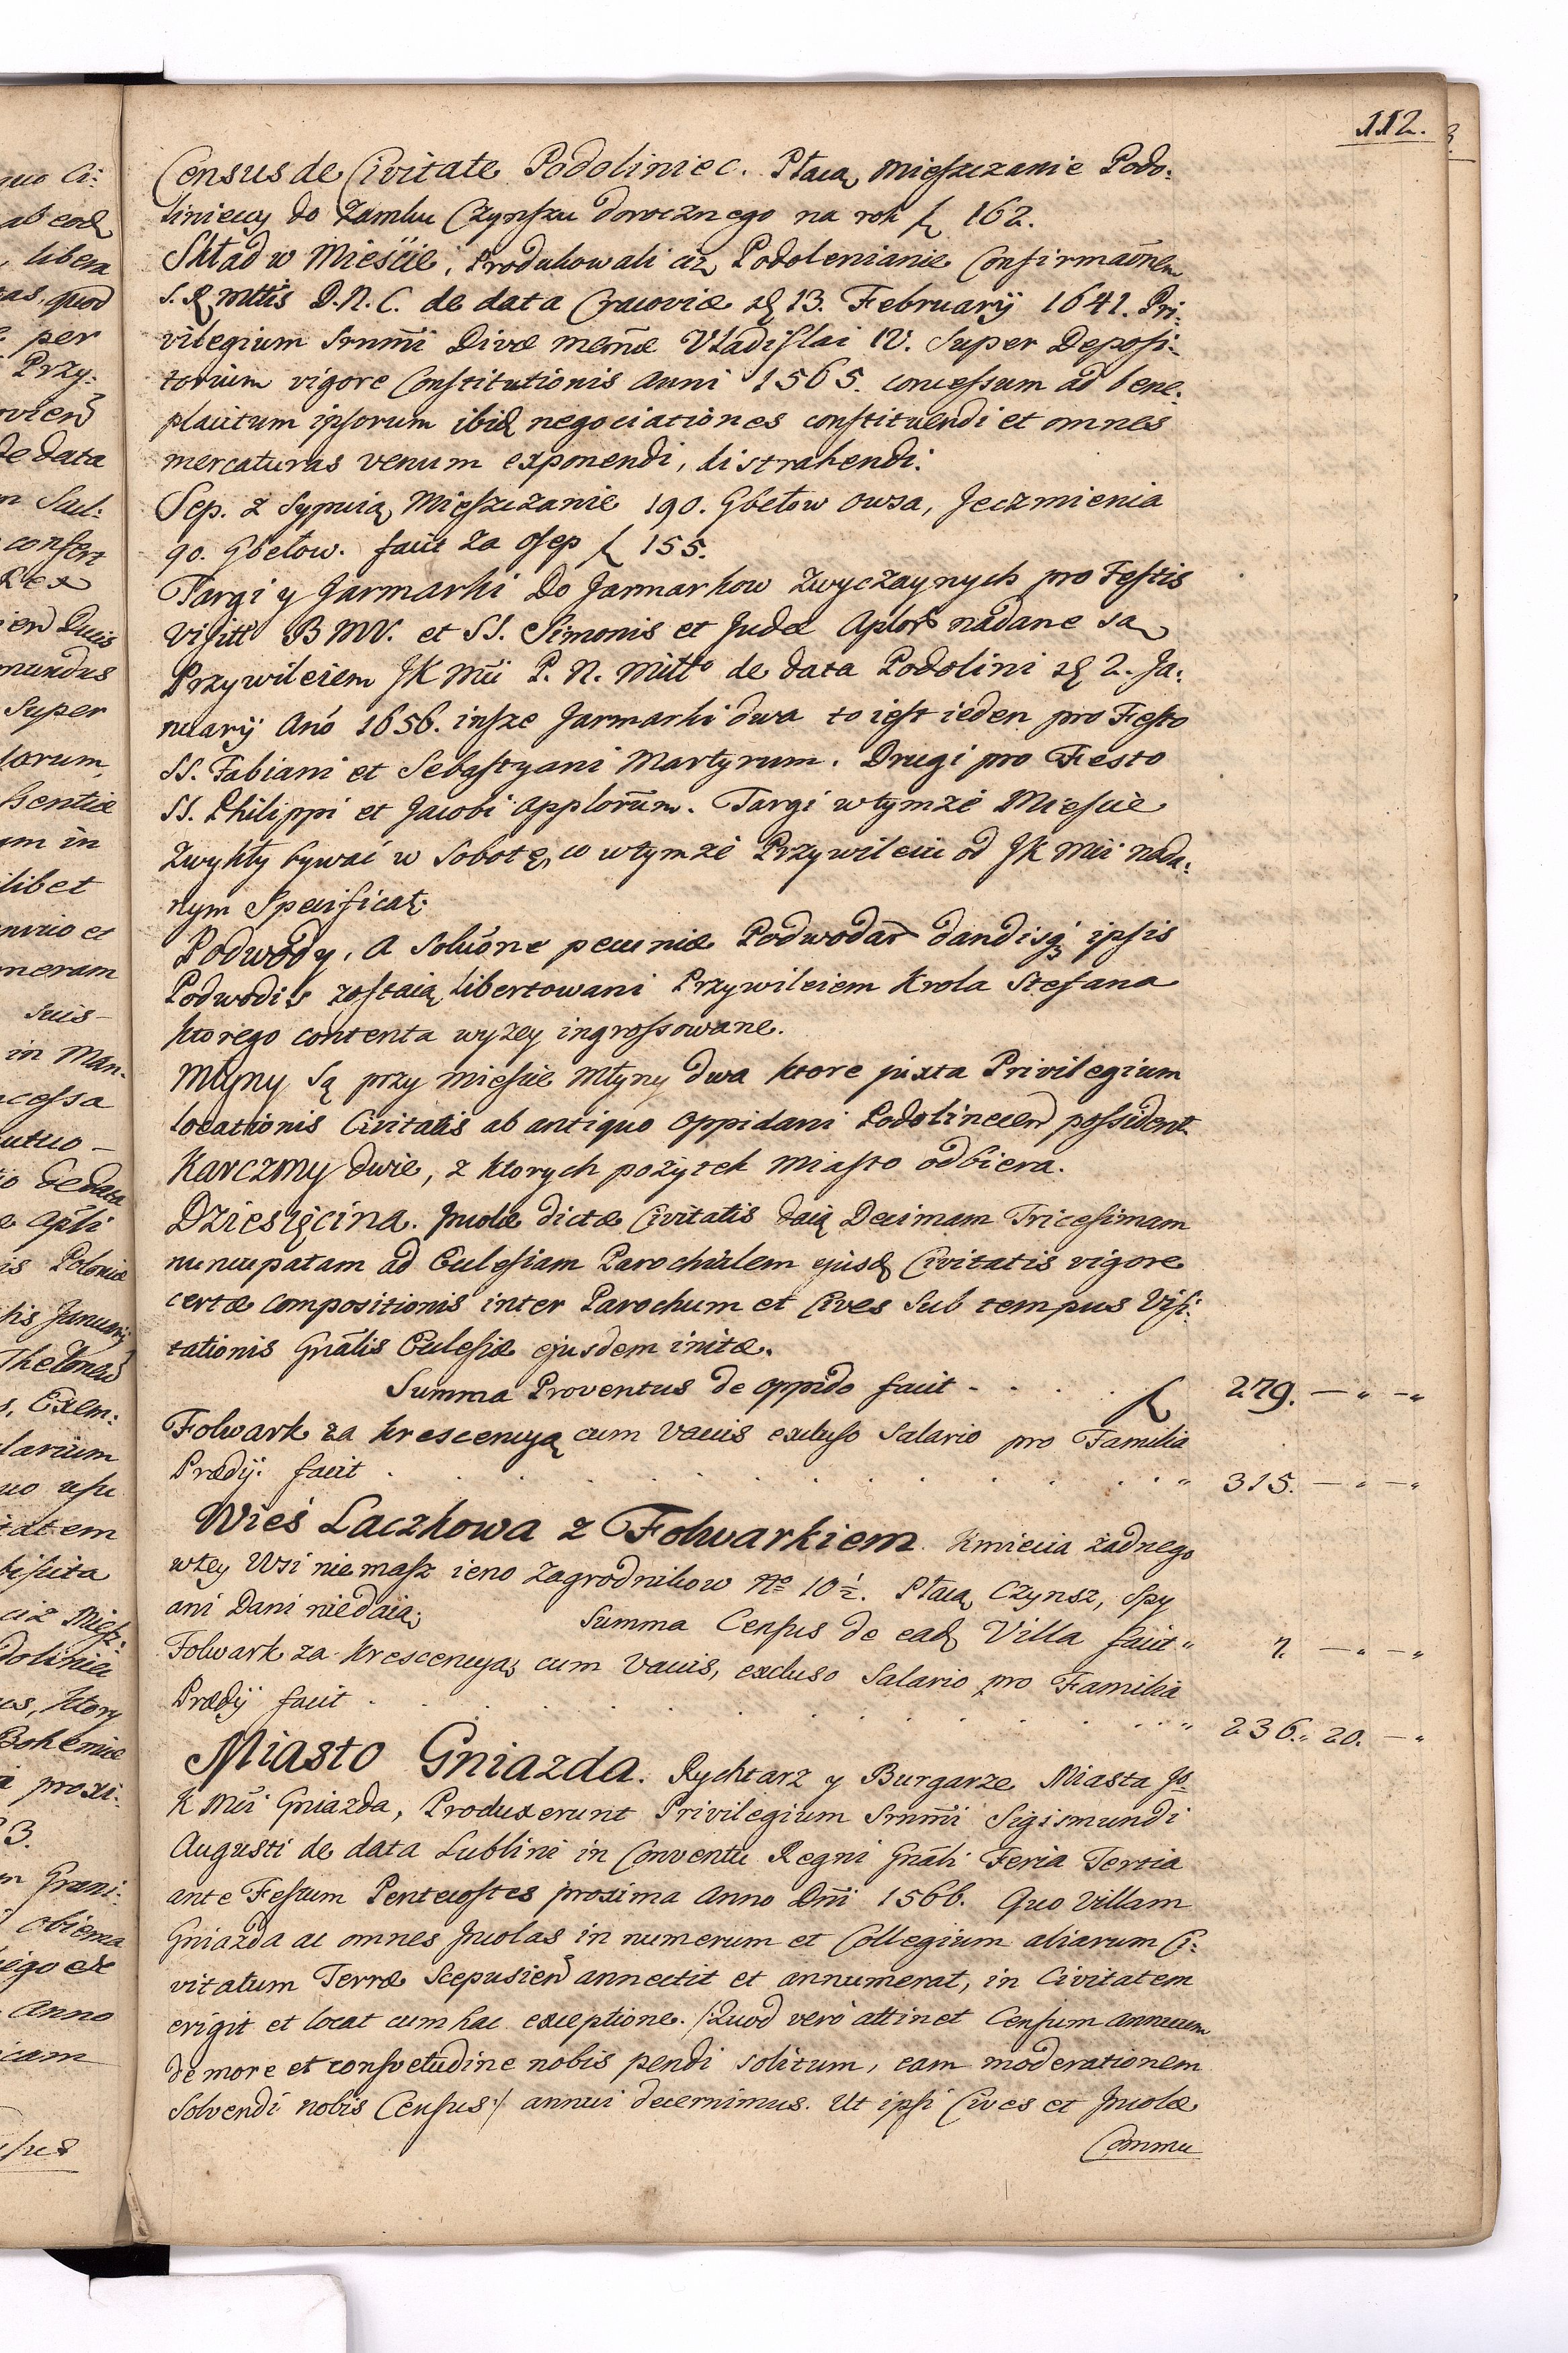 112.
Census de Civitate Podoliniec. Płacą Mieszczanie Podo:
linieccy do Zamku Czynszu dorocznego na rok f 162.
Skład w Mieście, Produkowali ciż Podolenianie Confirmaōnem
S. R Mttis D. N. C. de data Cracoviæ 13. February 1641. Pri:
vilegium Srnm̄i Divæ mem̄æ Vladislai IV. Super Deposi:
torium vigore Constitutionis Anni 1565. concessum ad bene:
placitum ipsorum ibid negociationes constituendi et omnes
mercaturas venum exponendi, distrahendi.
Sep. z Sypuią Mieszczanie 190. Gbełow Owsa, Jęczmienia
90. Gbełow. facit za Osep f 155.
Targi y Jarmarki Do Jarmarkow Zwyczaynych pro Festis
Visitt BMV. et SS. Simonis et Judæ Aplor nadane są
Przywileiem JK Mci P. N. Mitto de data Podolini 2. Ja:
nuary Ano 1656. insze Jarmarki dwa to iest ieden pro Festo
SS. Fabiani et Sebastyani Martyrum. Drugi pro Festo
SS. Philippi et Jacobi Applorum. Targi w tymże Miescie
Zwykły bywać w Sobotę, co w tymże Przywileiu od JK Mci nada:
nym Specificat.
Podwody, A Soluōne pecuniæ Podwodar dandisq ipsis
Podwodis zostaią libertowani Przywileiem Krola Stefana
ktorego contenta wyżey ingrossowane.
Młyny Są przy miescie Młyny dwa ktore juxta Privilegium
locationis Civitatis ab antiquo Oppidani Podolinecen possident
Karczmy dwie, z ktorych pożytek Miasto odbiera.
Dziesięcina. Incolæ dictæ Civitatis daią Decimam Tricesimam
nuncupatam ad Ecclesiam Parochialem ejusd Civitatis vigore
certæ compositionis inter Parochum et Cives Sub tempus Visi:
tationis Gnālis Ecclesiæ ejusdem initæ.
Summa Proventus de Oppido facit . . . . . f 279. — „ —„
Folwark za krescencyą cum Vaccis excluso Salario pro Familia
Prædij facit . . . . . . . . . . . . . „ 315. — „ —„
Wieś Laczkowa z Folwarkiem Kmiecia żadnego
w tey Wsi niemasz ieno Zagrodnikow No 10½. Płacą Czynsz, Spy
ani Dani niedaią; Summa Census de ead Villa facit „ 7. — „ —„
Folwark za krescencyą cum Vaccis, excluso Salario pro Familia
Prædij facit . . . . . . . . . . . . „ 236.„ 20. —„
Miasto Gniazda. Rychtarz y Burgarze Miasta Jo
K Mci Gniazda, Produxerunt Privilegium Srnm̄i Sigismundi
Augusti de data Lublini in Conventu Regni Gnāli Feria Tertia
ante Festum Pentecostes proxima Anno Dn̄i 1566. Quo Villam
Gniazda ac omnes Incolas in numerum et Collegium aliarum Ci:
vitatum Terræ Scepusien annectit et annumerat, in Civitatem
erigit et locat cum hac exceptione. /:Quod vero attinet Censum annuum
de more et consvetudine nobis pendi solitum, eam moderationem
Solvendi nobis Census:/ annui decernimus. Ut ipsi Cives et Incolæ
Commu